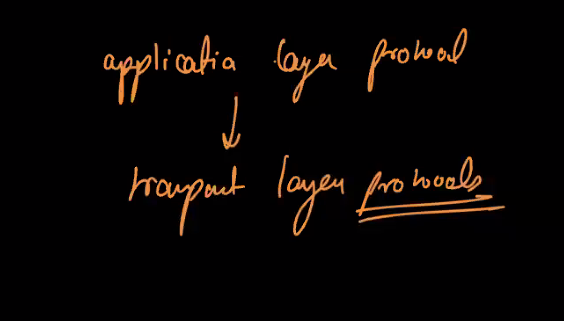 application layer protocol
transport layer protocols